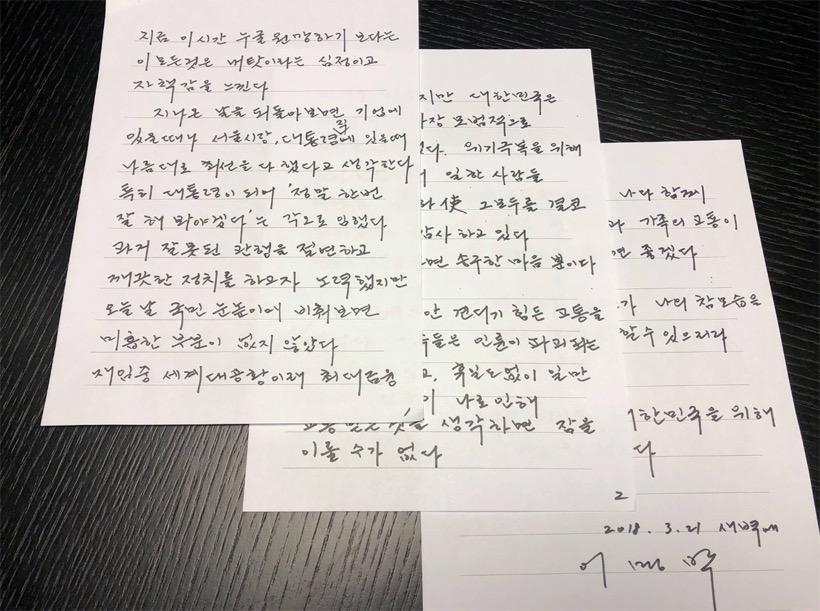 지금 이시간 누굴 원망하기 보다는
이 모든것은 내탓이라는 심정이고
자책감을 느낀다
지나온 날을 되돌아보면 기업에
있을때나 서울시장, 대통령직에 있을때
나름대로 최선을 다했다고 생각한다
특히 대통령이 되어 '정말 한번
잘 해 봐야겠다'는 각오로 임했다
과거 잘못된 관행을 절연하고
깨끗한 정치를 하고자 노력했지만
오늘 날 국민 눈높이에 비춰보면
미흡한 부분이 없지 않았다
재임중 세계대공황이래 최대금융
지만 대한민국은
가장 모범적으로
다. 위기극복을 위해
일한 사람들
使 그모두를 결코
감사 하고 있다
면 송구한 마음 뿐이다
안 견디기 힘든 고통을
들은 인륜이 파괴되는
고, 휴일도 없이 일만
이 나로 인해
고통 받는 것을 생각하면 잠을
이룰 수가 없다
2
나와 함께
과 가족의 고통이
면 좋겠다
가 나의 참모습을
할 수 있으리라
대한민국을 위해
다
2018. 3. 21 새벽에
이명박